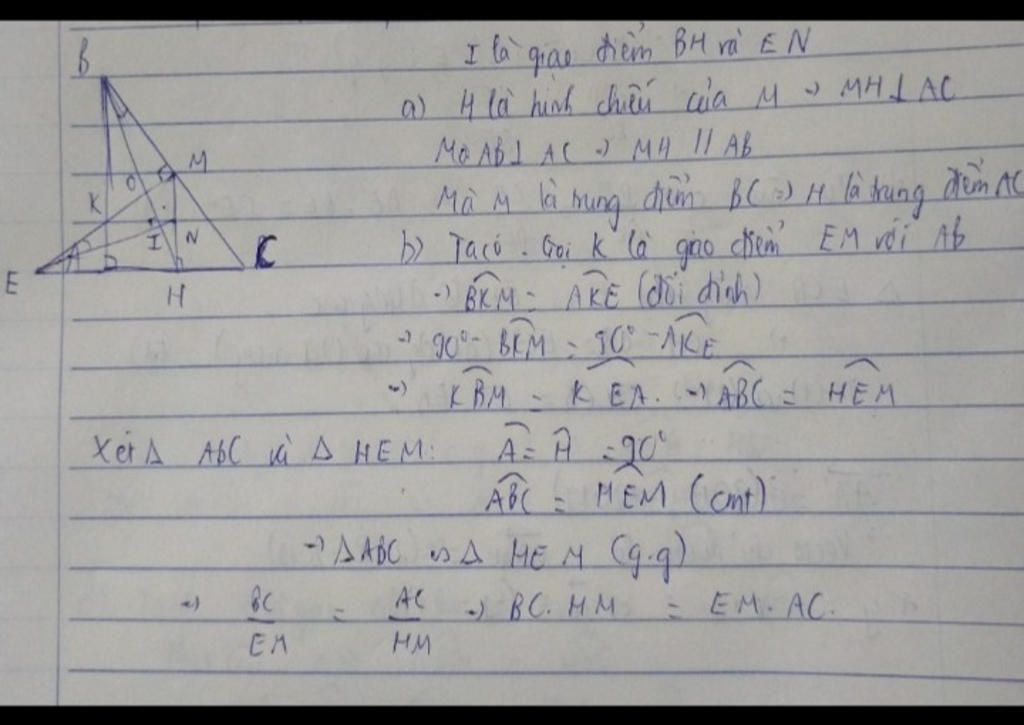 I là giao điểm BH và EN
a) H là hình chiếu của M → MH ⊥ AC
Mà AB ⊥ AC → MH // AB
Mà M là trung điểm BC → H là trung điểm AC
b) Ta có. Gọi K là giao điểm EM với AB
→ BKM = AKE (đối đỉnh)
→ 90° - BKM = 90° - AKE
→ KBM = KEA. → ABC = HEM
Xét Δ ABC và Δ HEM: A = H = 90°
ABC = HEM (cmt)
→ ΔABC ∽ Δ HEM (g.g)
→ BC/EM = AC/HM → BC. HM = EM. AC.
B
M
O
K
I
N
E
A
H
C